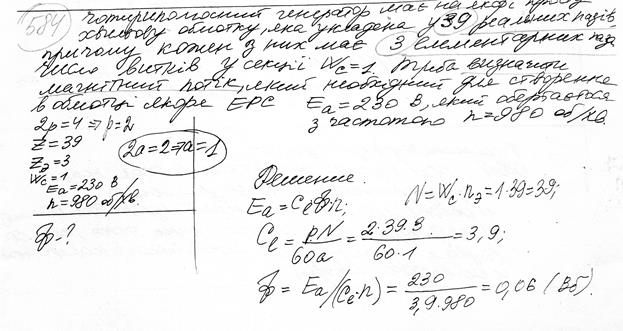 584) Чотириполюсний генератор має на якорі просту
хвильову обмотку, яка укладена у 39 реальних пазів,
причому кожен з них має 3 елементарних паза
Число витків у секції Wc=1. Треба визначити
магнітний потік, який необхідний для створення
в обмотці якоря ЕРС Ea=230 В, який обертається
з частотою n=980 об/хв.
2p=4 ⇒ p=2
Z=39
Zэ=3
Wc=1
Ea=230 В
n=980 об/хв.
2a=2⇒a=1
Ф-?
Решение.
Ea=CeФ·n;
N=Wc·nэ=1·39=39;
Ce=pN/60a=2·39.3/60·1=3,9;
Ф=Ea/(Ce·n)=230/3,9·980=0,06 (Вб).